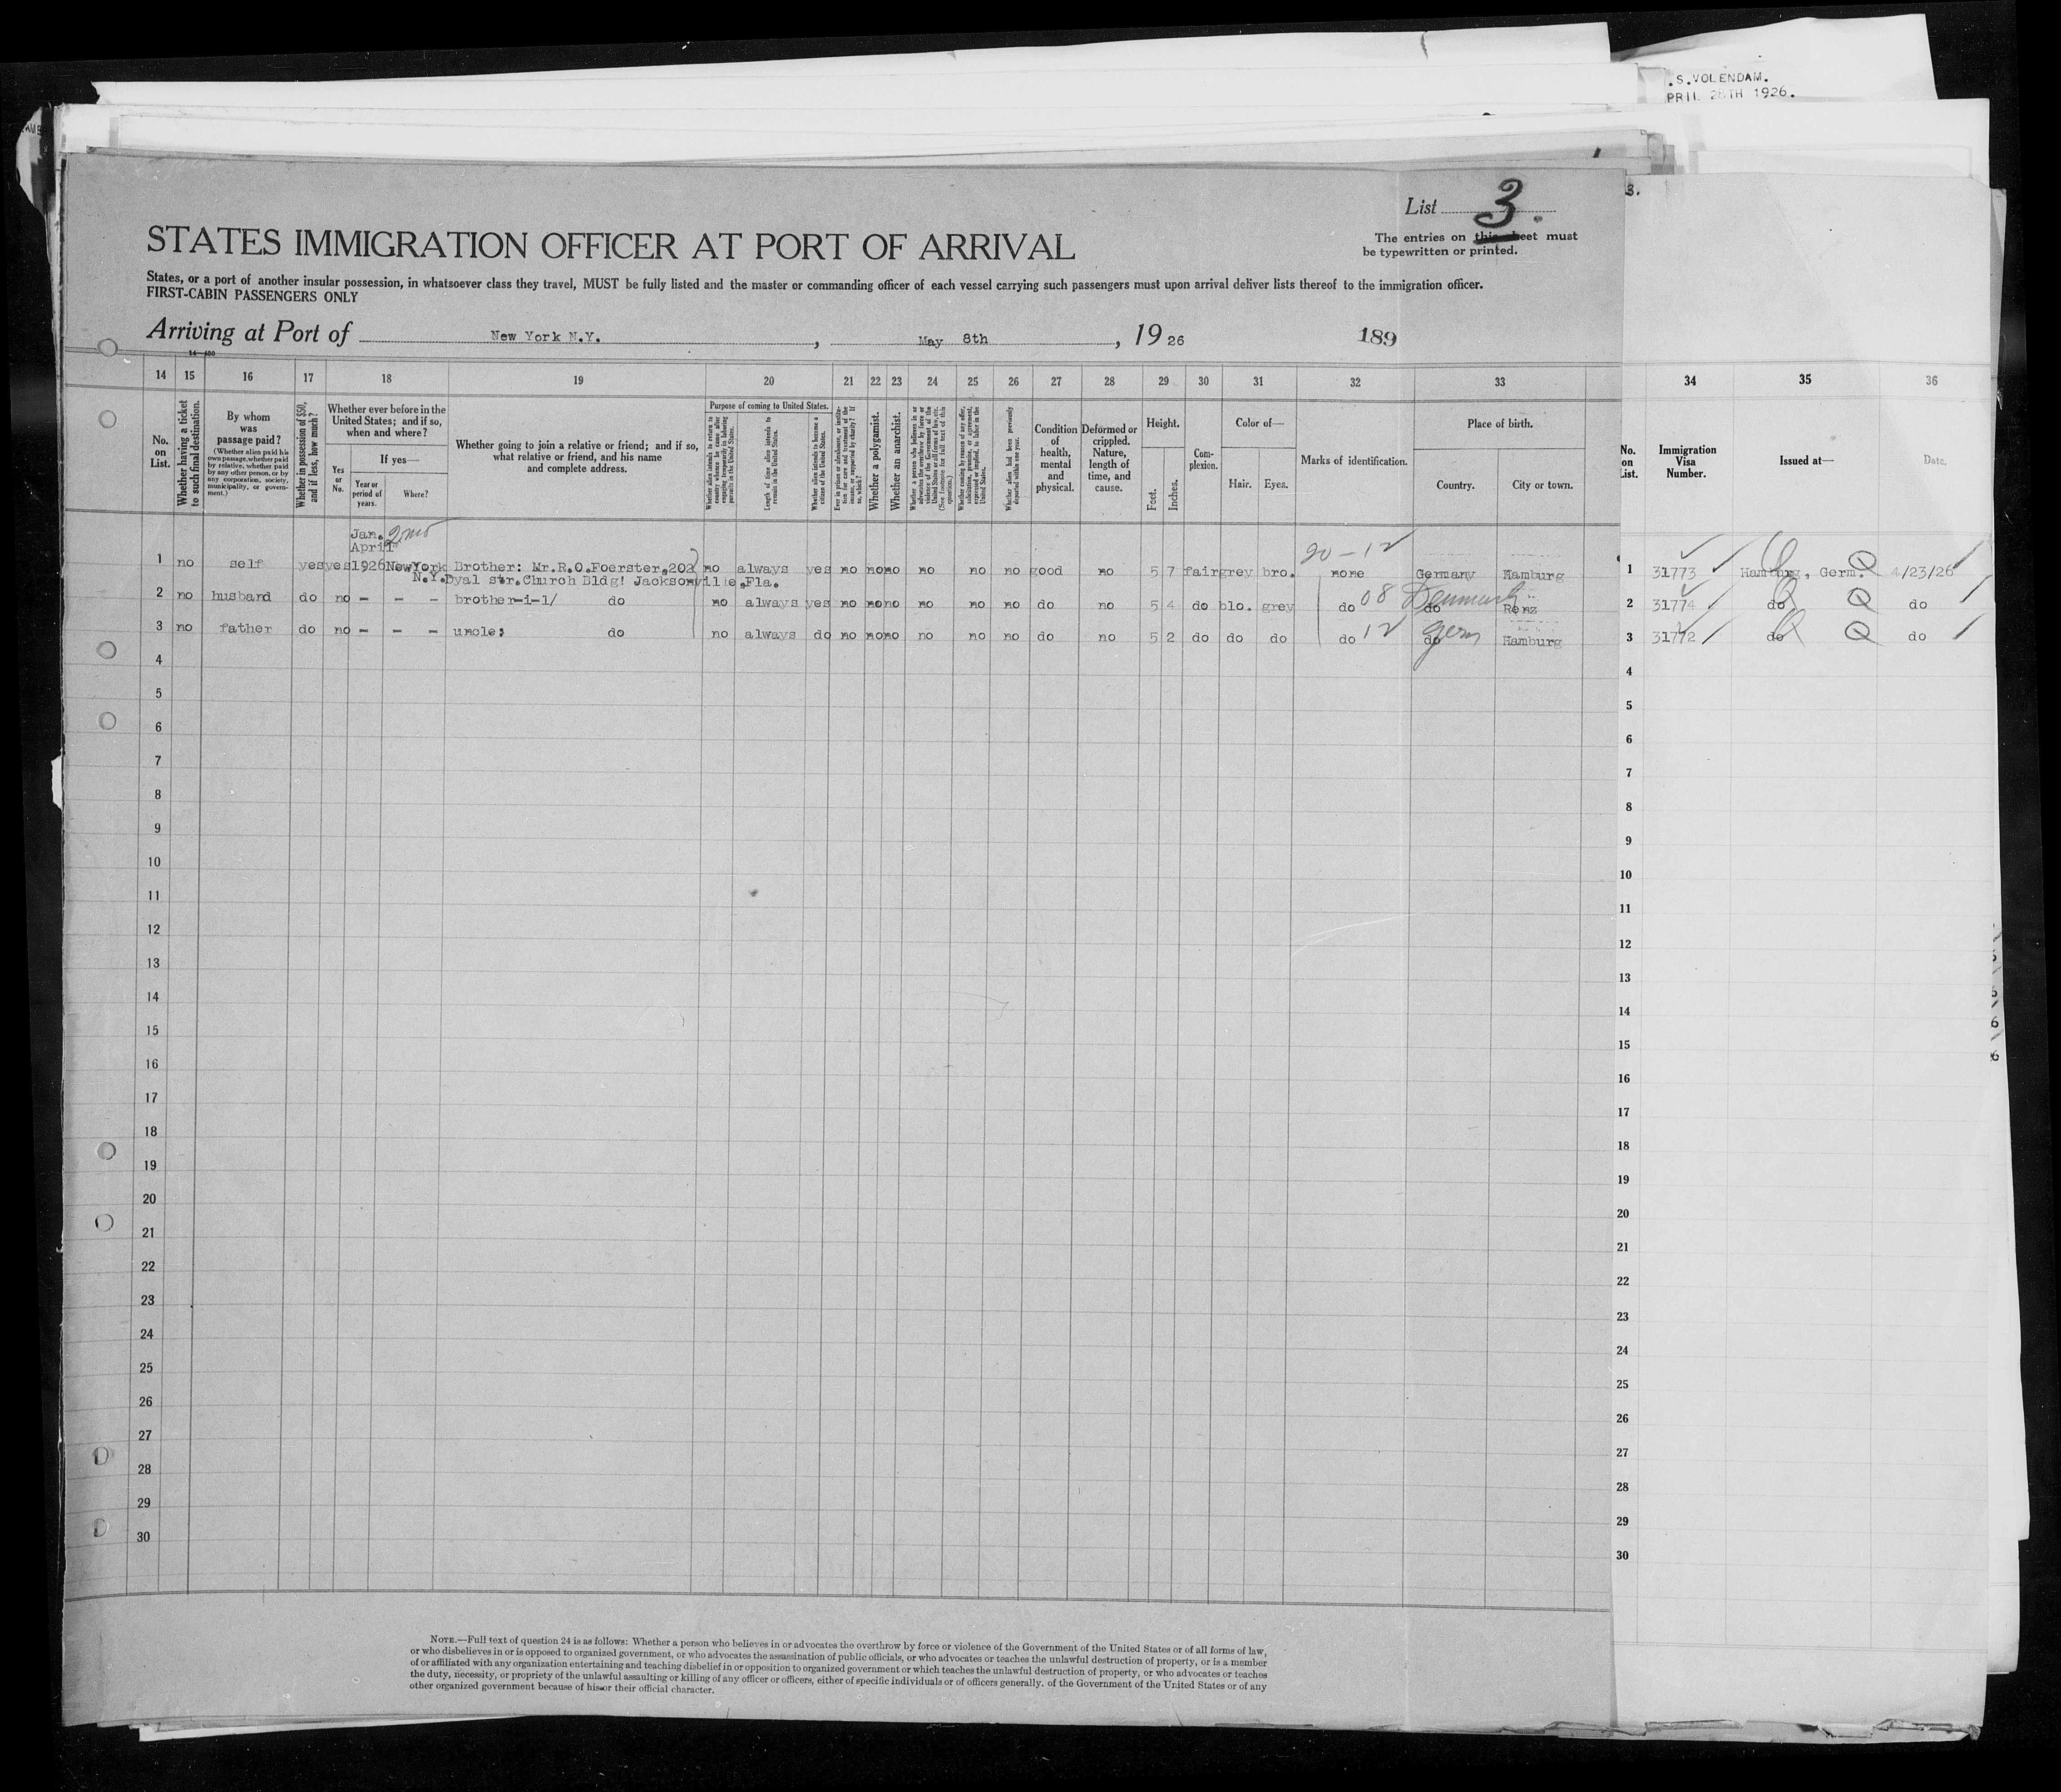 .S.VOLENDAM.
PRIL 28TH 1926.
3.
List 3.
The entries on this sheet must
be typewritten or printed.
STATES IMMIGRATION OFFICER AT PORT OF ARRIVAL
States, or a port of another insular possession, in whatsoever class they travel, MUST be fully listed and the master or commanding officer of each vessel carrying such passengers must upon arrival deliver lists thereof to the immigration officer.
FIRST-CABIN PASSENGERS ONLY
Arriving at Port of New York N.Y., May 8th, 19 26 189
14 15 16 17 18 19 20 21 22 23 24 25 26 27 28 29 30 31 32 33 34 35 36
No. on List.
Whether having a ticket to such final destination.
By whom was passage paid?
(Whether alien paid his own passage, whether paid by relative, whether paid by any other person, or by any corporation, society, municipality, or government.)
Whether in possession of $50, and if less, how much?
Whether ever before in the United States; and if so, when and where?
Yes or No.
If yes—
Year or period of years.
Where?
Whether going to join a relative or friend; and if so, what relative or friend, and his name and complete address.
Purpose of coming to United States.
Whether alien intends to return to country whence he came after engaging temporarily in laboring pursuits in the United States.
Length of time alien intends to remain in the United States.
Whether alien intends to become a citizen of the United States.
Ever in prison or almshouse, or institution for care and treatment of the insane, or supported by charity? If so, which?
Whether a polygamist.
Whether an anarchist.
Whether a person who believes in or advocates the overthrow by force or violence of the Government of the United States or all forms of law, etc. (See footnote for full text of this question.)
Whether coming by reason of any offer, solicitation, promise, or agreement, expressed or implied, to labor in the United States.
Whether alien had been previously deported within one year.
Condition of health, mental and physical.
Deformed or crippled. Nature, length of time, and cause.
Height.
Feet. Inches.
Complexion.
Color of—
Hair. Eyes.
Marks of identification.
Place of birth.
Country. City or town.
No. on List.
Immigration Visa Number.
Issued at—
Date.
Jan. 2 mo
April
20-12
1 no self yes yes 1926 New York Brother: Mr.R.O.Foerster,202 no always yes no no no no no no good no 5 7 fair grey bro. none Germany Hamburg 1 31773 Hamburg, Germ. Q 4/23/26
N.Y. Dyal str.Church Bldg! Jacksonville,Fla.
2 no husband do no - - - brother-i-l/ do no always yes no no no no no no do no 5 4 do blo. grey do 08 do Denmark Renz 2 31774 do Q do
3 no father do no - - - uncle: do no always do no no no no no no do no 5 2 do do do do 12 do Germ Hamburg 3 31772 do Q do
4 4
5 5
6 6
7 7
8 8
9 9
10 10
11 11
12 12
13 13
14 14
15 15
16 16
17 17
18 18
19 19
20 20
21 21
22 22
23 23
24 24
25 25
26 26
27 27
28 28
29 29
30 30
NOTE.—Full text of question 24 is as follows: Whether a person who believes in or advocates the overthrow by force or violence of the Government of the United States or of all forms of law,
or who disbelieves in or is opposed to organized government, or who advocates the assassination of public officials, or who advocates or teaches the unlawful destruction of property, or is a member
of or affiliated with any organization entertaining and teaching disbelief in or opposition to organized government or which teaches the unlawful destruction of property, or who advocates or teaches
the duty, necessity, or propriety of the unlawful assaulting or killing of any officer or officers, either of specific individuals or of officers generally. of the Government of the United States or of any
other organized government because of his or their official character.